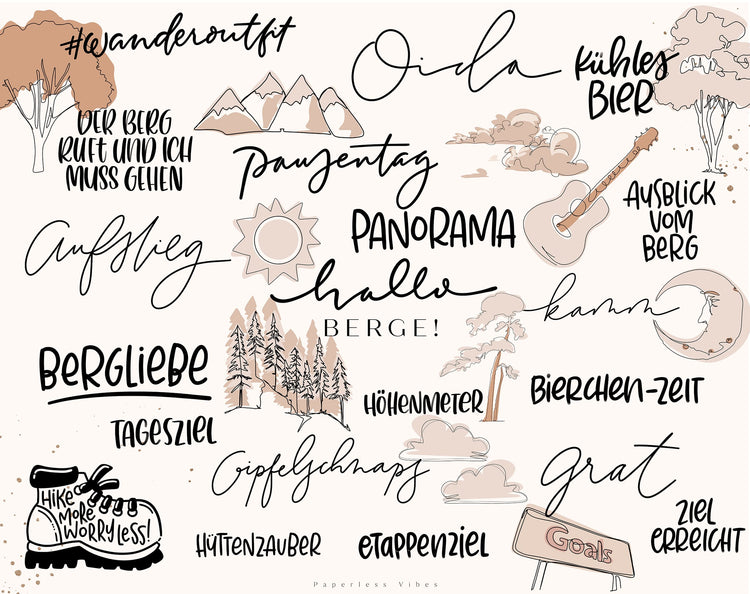 #wanderoutfit
Oida
Kühles
BIER
DER BERG
RUFT UND ICH
MUSS GEHEN
pausentag
AUSBLICK
VOM
BERG
PANORAMA
Aufstieg
hallo
BERGE!
kamm
BERGLIEBE
HÖHENMETER
BIERCHEN-ZEIT
TAGESZIEL
Gipfelschnaps
grat
HIKE
MORE
WORRY LESS!
HÜTTENZAUBER
eTAPPENZIEL
Goals
ZIEL
eRREICHT
Paperless Vibes